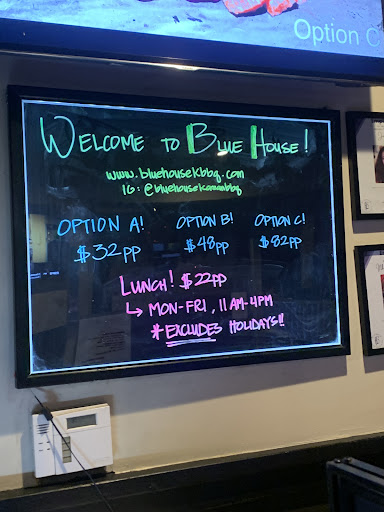 Option C
WELCOME TO BLUE HOUSE!
www.bluehousekbbq.com
IG: @bluehousekoreanbbq
OPTION A! OPTION B! OPTION C!
$32PP $48PP $82PP
LUNCH! $22PP
↳ MON-FRI, 11AM-4PM
*EXCLUDES HOLIDAYS!!